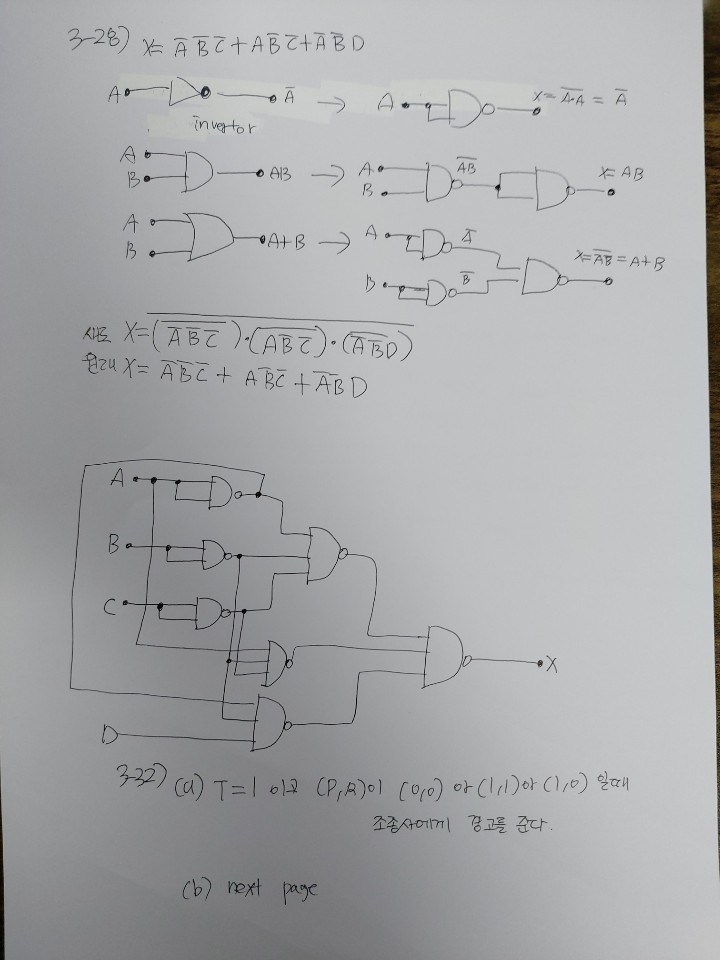 3-28) X= A̅ B̅ C̅ + A B̅ C̅ + A̅ B̅ D
A A̅ → A X = \overline{A·A} = A̅
invertor
A B AB → A B \overline{AB} X= AB
A B A+B → A B A̅ B̅ X=\overline{A̅B̅} = A+B
X=\overline{(\overline{A̅ B̅ C̅})·(\overline{A B̅ C̅})·(\overline{A̅ B̅ D})}
원래 X= A̅ B̅ C̅ + A B̅ C̅ + A̅ B̅ D
A
B
C
X
D
3-32) (a) T=1 이고 (P,R)이 (0,0) or (1,1) or (1,0) 일때
조종사에게 경고를 준다.
(b) next page